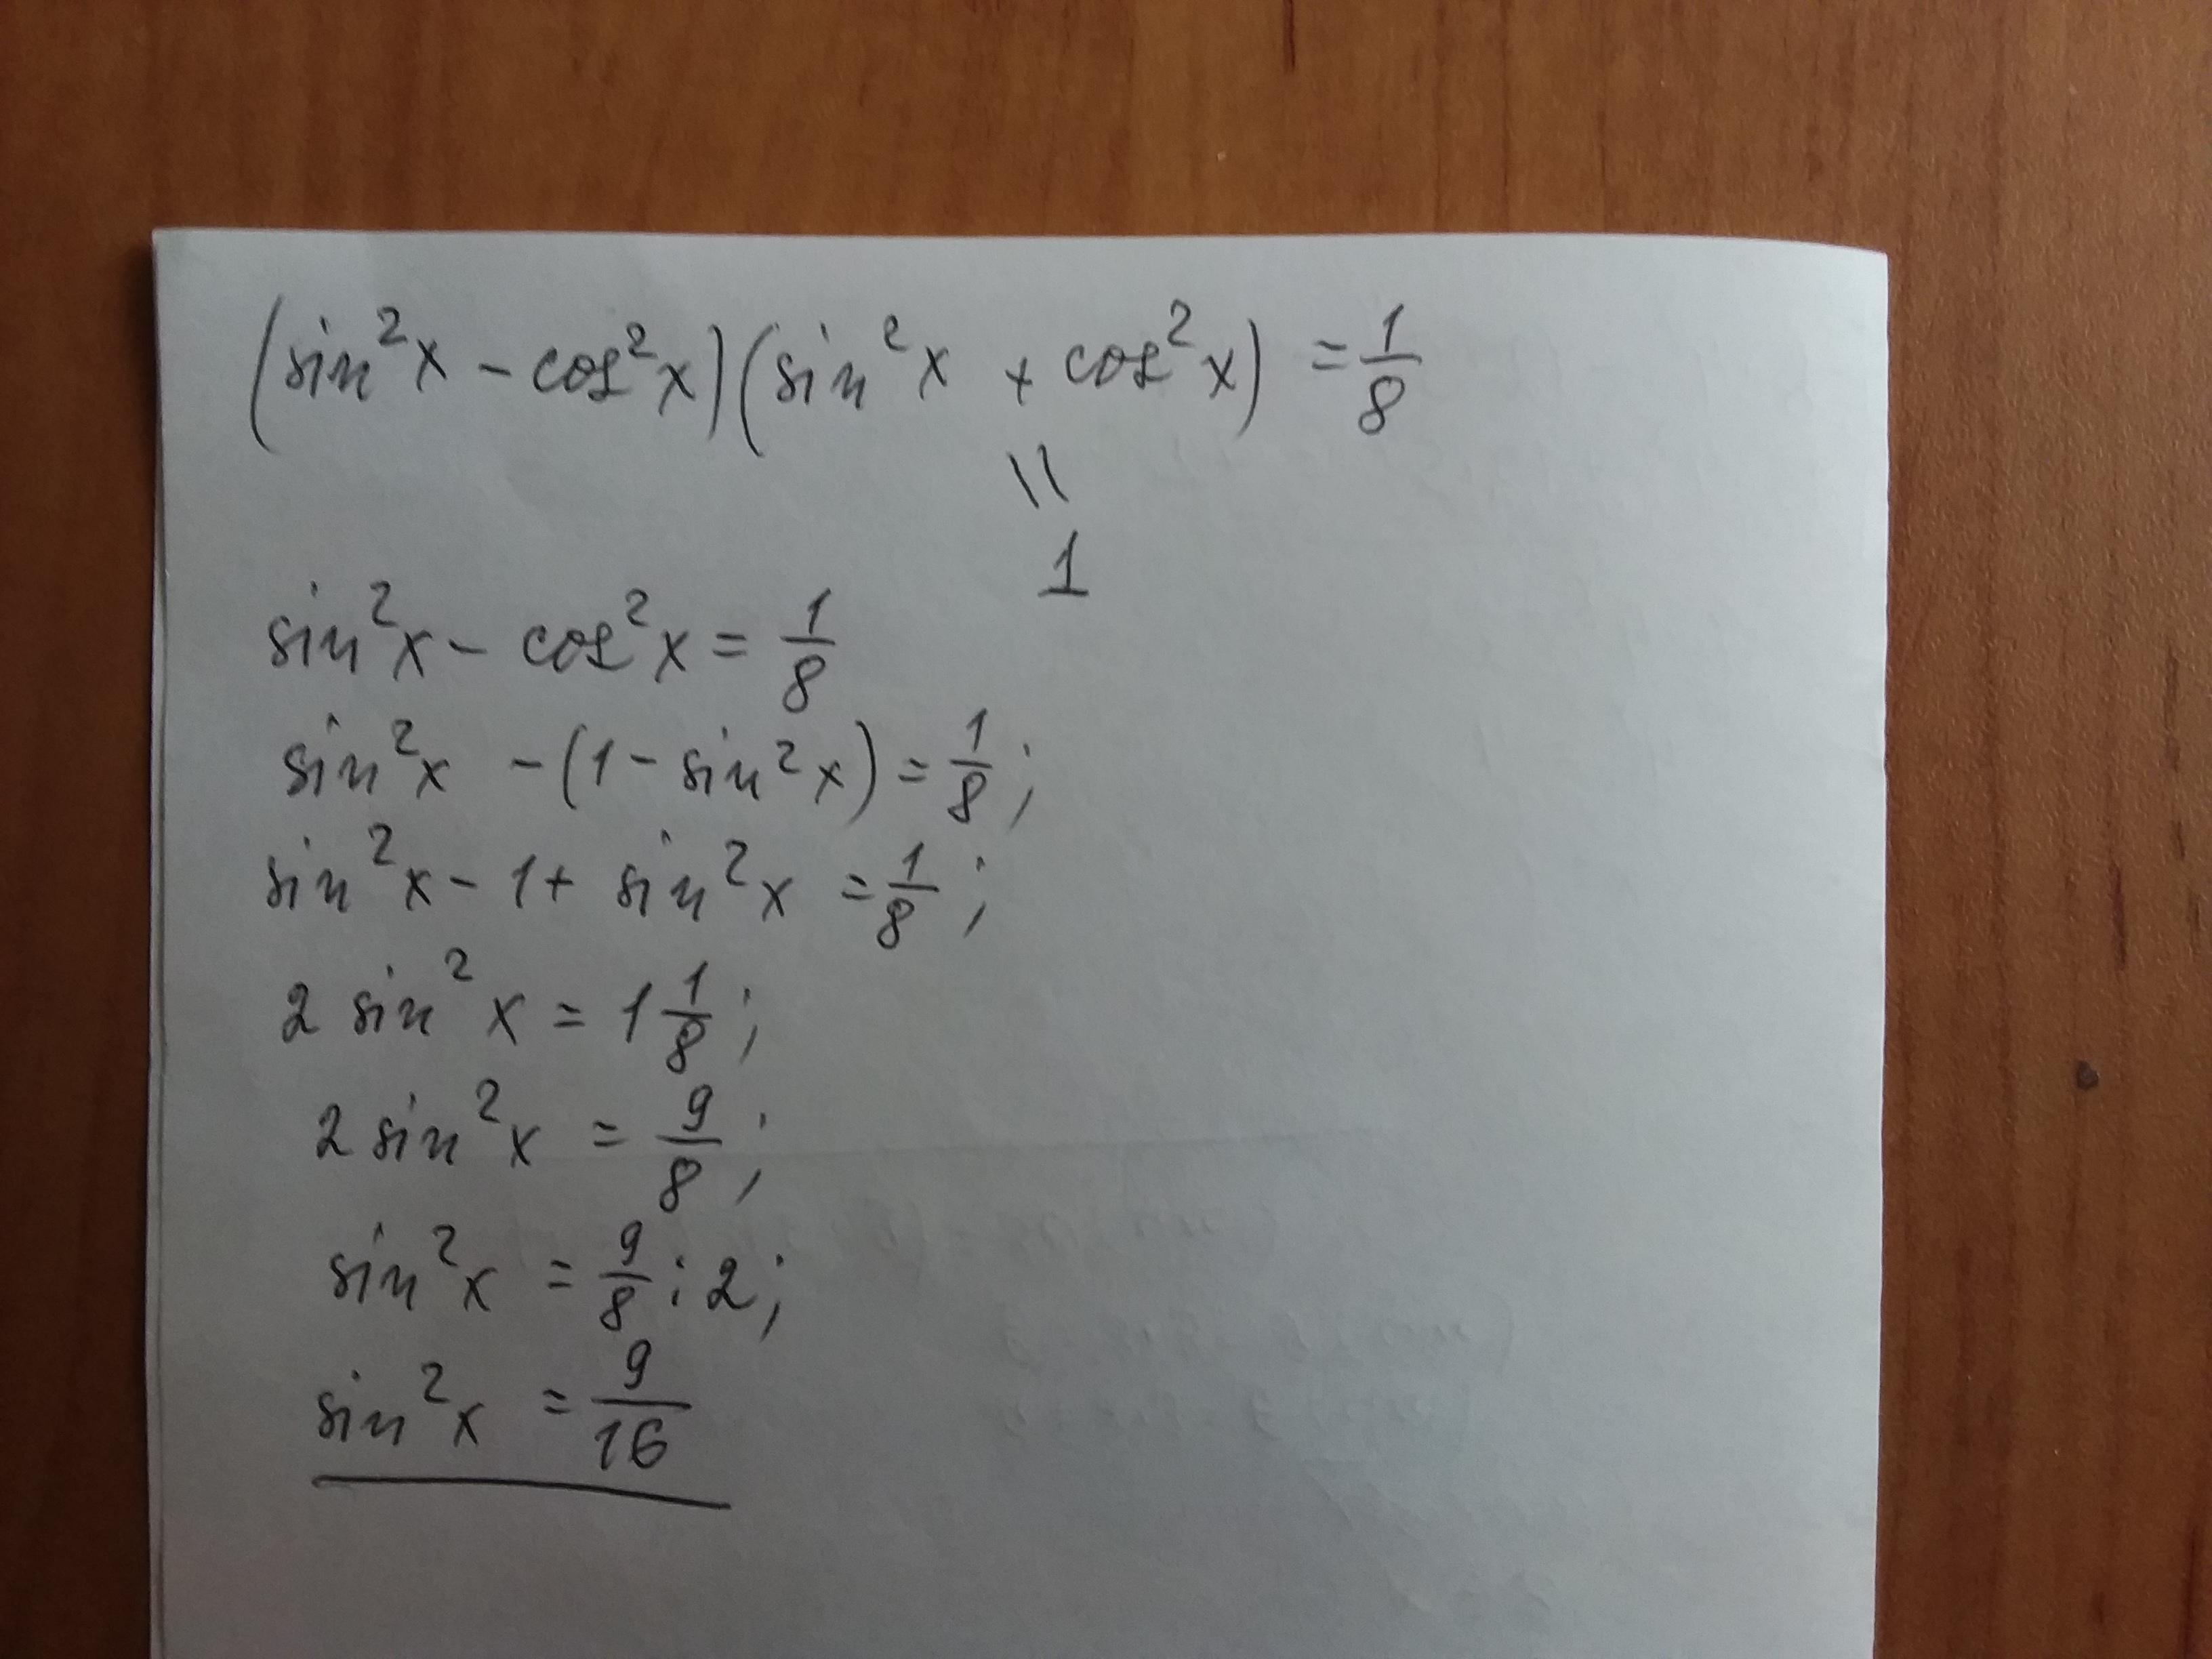 (sin²x - cos²x)(sin²x + cos²x) = 1/8
||
1
sin²x - cos²x = 1/8
sin²x - (1 - sin²x) = 1/8;
sin²x - 1 + sin²x = 1/8;
2 sin²x = 1 1/8;
2 sin²x = 9/8;
sin²x = 9/8 : 2;
sin²x = 9/16